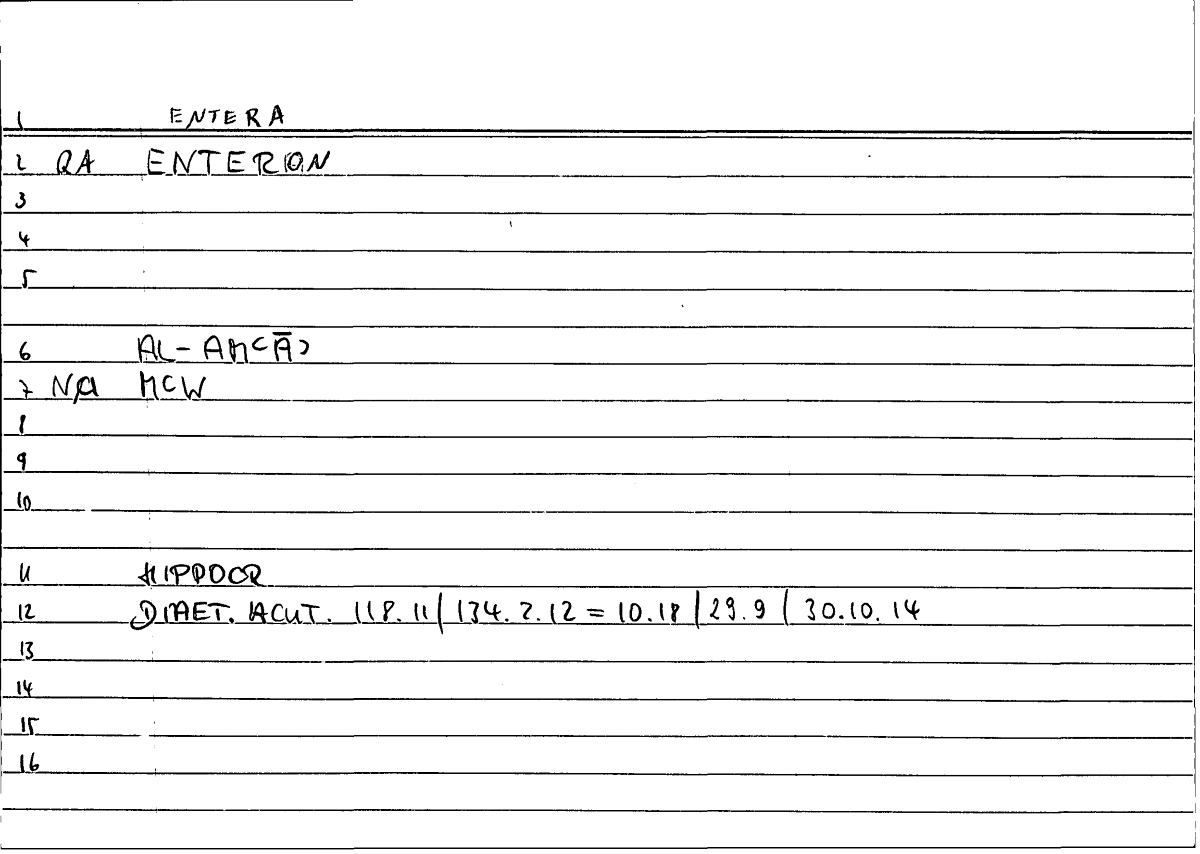 1 ENTERA
2 QA ENTERON
3
4
5
6 AL-AMʿĀʾ
7 NQ MʿW
8
9
10
11 HIPPOCR
12 DIAET. ACUT. 118.11 / 134.2.12 = 10.18 / 29.9 / 30.10.14
13
14
15
16